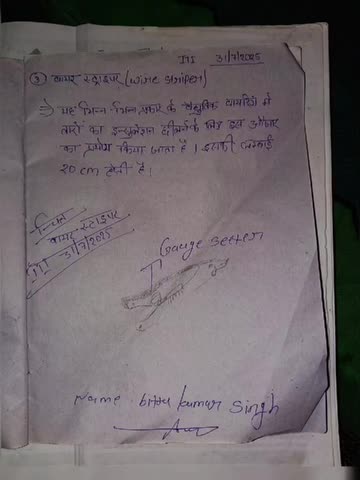 ITI 31/7/2025
③ वायर स्ट्राइपर (wire striper)
⇒ यह भिन्न-भिन्न प्रकार के वैद्युतिक वायरिंग में
तारों का इन्सुलेशन छीलने के लिए इस औजार
का प्रयोग किया जाता है। इसकी लम्बाई
20 cm होती है।
चित्र
वायर स्ट्राइपर
ITI 31/7/2025
Gauge setter
Name kumar Singh